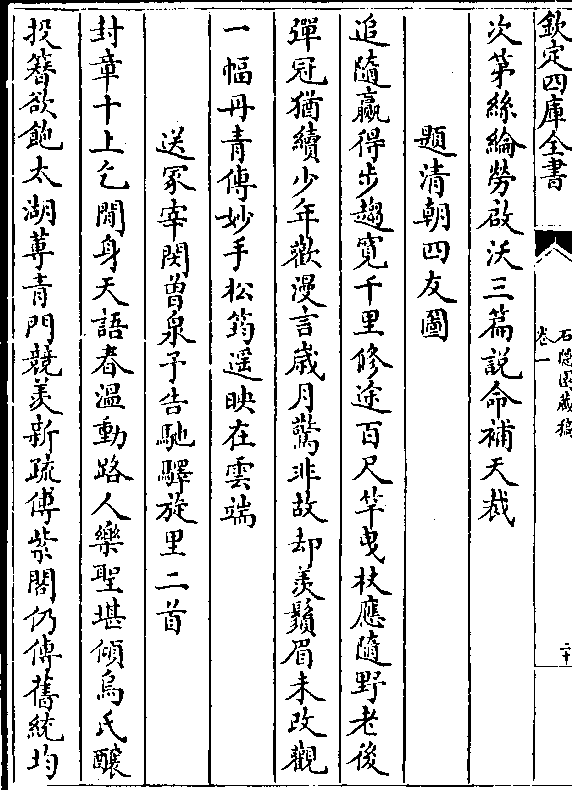 欽定四庫全書
石隱園藏稿
卷一
二十
次第絲綸勞啟沃三篇説命補天裁
題清朝四友圖
追隨贏得步趨寛千里修途百尺竿曳杖應隨野老後
彈冠猶續少年歡漫言歳月驚非故却羡鬚眉未改觀
一幅丹青傳妙手松筠遥映在雲端
送冡宰閔曽泉予告馳驛旋里二首
封章十上乞閒身天語春溫動路人樂聖堪傾烏氏釀
投簪欲飽太湖蓴青門競羡新疏傅紫閣仍傳舊統均